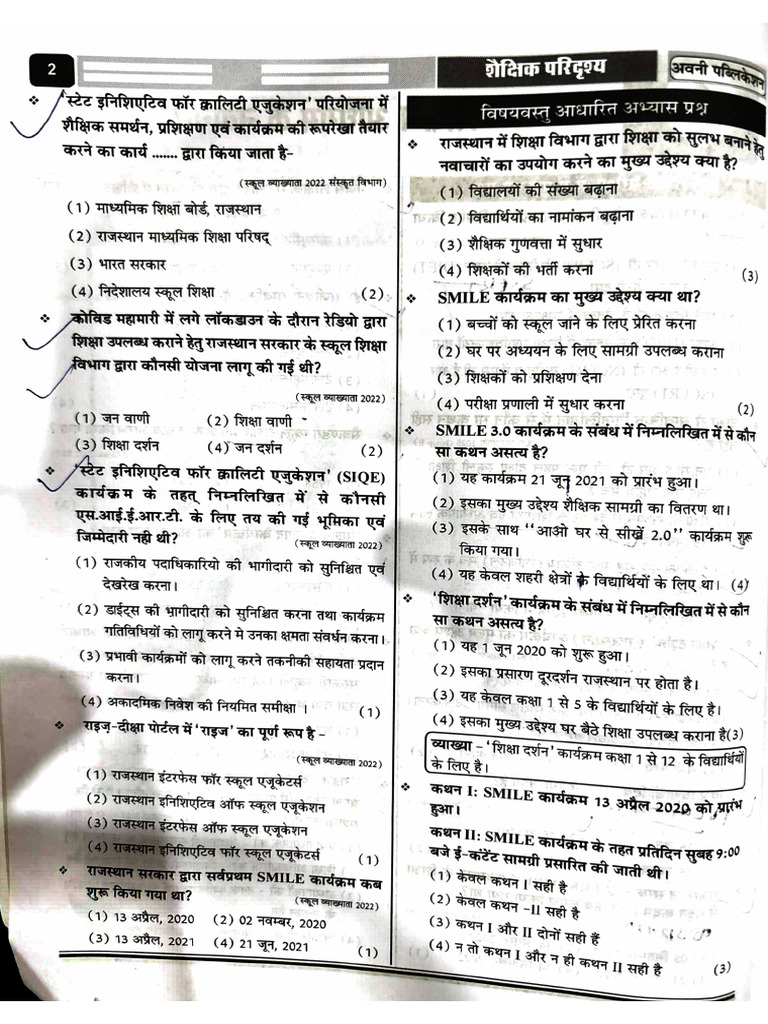 2
शैक्षिक परिदृश्य
अवनी पब्लिकेशन
❖ 'स्टेट इनिशिएटिव फॉर क्वालिटी एजुकेशन' परियोजना में
शैक्षिक समर्थन, प्रशिक्षण एवं कार्यक्रम की रूपरेखा तैयार
करने का कार्य ....... द्वारा किया जाता है-
(स्कूल व्याख्याता 2022 संस्कृत विभाग)
(1) माध्यमिक शिक्षा बोर्ड, राजस्थान
(2) राजस्थान माध्यमिक शिक्षा परिषद्
(3) भारत सरकार
(4) निदेशालय स्कूल शिक्षा (2)
❖ कोविड महामारी में लगे लॉकडाउन के दौरान रेडियो द्वारा
शिक्षा उपलब्ध कराने हेतु राजस्थान सरकार के स्कूल शिक्षा
विभाग द्वारा कौनसी योजना लागू की गई थी?
(स्कूल व्याख्याता 2022)
(1) जन वाणी (2) शिक्षा वाणी
(3) शिक्षा दर्शन (4) जन दर्शन (2)
❖ 'स्टेट इनिशिएटिव फॉर क्वालिटी एजुकेशन' (SIQE)
कार्यक्रम के तहत् निम्नलिखित में से कौनसी
एस.आई.ई.आर.टी. के लिए तय की गई भूमिका एवं
जिम्मेदारी नही थी? (स्कूल व्याख्याता 2022)
(1) राजकीय पदाधिकारियो की भागीदारी को सुनिश्चित एवं
देखरेख करना।
(2) डाईट्स की भागीदारी को सुनिश्चित करना तथा कार्यक्रम
गतिविधियों को लागू करने मे उनका क्षमता संवर्धन करना।
(3) प्रभावी कार्यक्रमों को लागू करने तकनीकी सहायता प्रदान
करना।
(4) अकादमिक निवेश की नियमित समीक्षा । (1)
❖ राइज-दीक्षा पोर्टल में 'राइज' का पूर्ण रूप है -
(स्कूल व्याख्याता 2022)
(1) राजस्थान इंटरफेस फॉर स्कूल एजूकेटर्स
(2) राजस्थान इनिशिएटिव ऑफ स्कूल एजुकेशन
(3) राजस्थान इंटरफेस ऑफ स्कूल एजुकेशन
(4) राजस्थान इनिशिएटिव फॉर स्कूल एजुकेटर्स (1)
❖ राजस्थान सरकार द्वारा सर्वप्रथम SMILE कार्यक्रम कब
शुरू किया गया था? (स्कूल व्याख्याता 2022)
(1) 13 अप्रैल, 2020 (2) 02 नवम्बर, 2020
(3) 13 अप्रैल, 2021 (4) 21 जून, 2021 (1)
विषयवस्तु आधारित अभ्यास प्रश्न
❖ राजस्थान में शिक्षा विभाग द्वारा शिक्षा को सुलभ बनाने हेतु
नवाचारों का उपयोग करने का मुख्य उद्देश्य क्या है?
(1) विद्यालयों की संख्या बढ़ाना
(2) विद्यार्थियों का नामांकन बढ़ाना
(3) शैक्षिक गुणवत्ता में सुधार
(4) शिक्षकों की भर्ती करना (3)
❖ SMILE कार्यक्रम का मुख्य उद्देश्य क्या था?
(1) बच्चों को स्कूल जाने के लिए प्रेरित करना
(2) घर पर अध्ययन के लिए सामग्री उपलब्ध कराना
(3) शिक्षकों को प्रशिक्षण देना
(4) परीक्षा प्रणाली में सुधार करना (2)
❖ SMILE 3.0 कार्यक्रम के संबंध में निम्नलिखित में से कौन
सा कथन असत्य है?
(1) यह कार्यक्रम 21 जून 2021 को प्रारंभ हुआ।
(2) इसका मुख्य उद्देश्य शैक्षिक सामग्री का वितरण था।
(3) इसके साथ "आओ घर से सीखें 2.0" कार्यक्रम शुरू
किया गया।
(4) यह केवल शहरी क्षेत्रों के विद्यार्थियों के लिए था। (4)
❖ 'शिक्षा दर्शन' कार्यक्रम के संबंध में निम्नलिखित में से कौन
सा कथन असत्य है?
(1) यह 1 जून 2020 को शुरू हुआ।
(2) इसका प्रसारण दूरदर्शन राजस्थान पर होता है।
(3) यह केवल कक्षा 1 से 5 के विद्यार्थियों के लिए है।
(4) इसका मुख्य उद्देश्य घर बैठे शिक्षा उपलब्ध कराना है(3)
व्याख्या – 'शिक्षा दर्शन' कार्यक्रम कक्षा 1 से 12 के विद्यार्थियों
के लिए है।
❖ कथन I: SMILE कार्यक्रम 13 अप्रैल 2020 को प्रारंभ
हुआ।
कथन II: SMILE कार्यक्रम के तहत प्रतिदिन सुबह 9:00
बजे ई-कंटेंट सामग्री प्रसारित की जाती थी।
(1) केवल कथन I सही है
(2) केवल कथन -II सही है
(3) कथन I और II दोनों सही हैं
(4) न तो कथन I और न ही कथन II सही है (3)